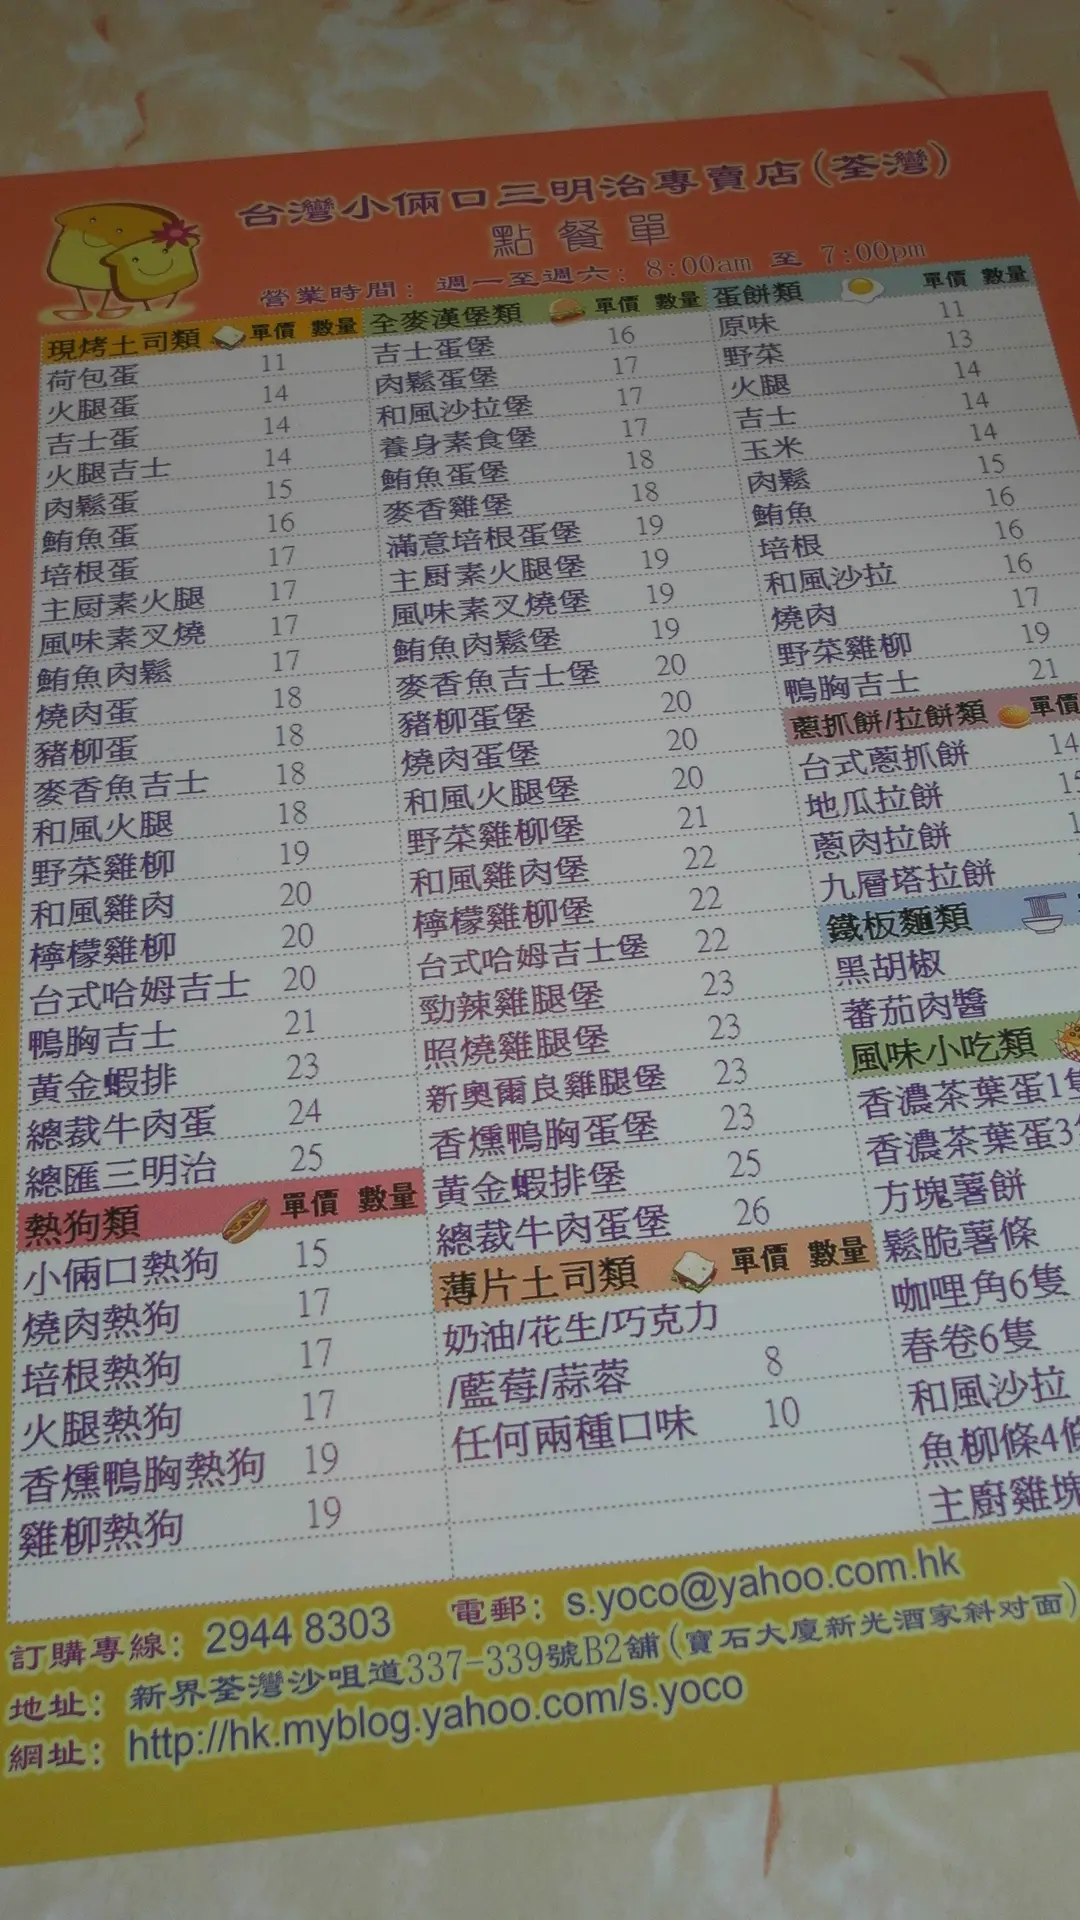 台灣小倆口三明治專賣店(荃灣)
點餐單
營業時間：週一至週六：8:00am 至 7:00pm
現烤土司類 單價 數量
荷包蛋 11
火腿蛋 14
吉士蛋 14
火腿吉士 14
肉鬆蛋 15
鮪魚蛋 16
培根蛋 17
主厨素火腿 17
風味素叉燒 17
鮪魚肉鬆 17
燒肉蛋 18
豬柳蛋 18
麥香魚吉士 18
和風火腿 18
野菜雞柳 19
和風雞肉 20
檸檬雞柳 20
台式哈姆吉士 20
鴨胸吉士 21
黃金蝦排 23
總裁牛肉蛋 24
總匯三明治 25
熱狗類 單價 數量
小倆口熱狗 15
燒肉熱狗 17
培根熱狗 17
火腿熱狗 17
香燻鴨胸熱狗 19
雞柳熱狗 19
全麥漢堡類 單價 數量
吉士蛋堡 16
肉鬆蛋堡 17
和風沙拉堡 17
養身素食堡 17
鮪魚蛋堡 18
麥香雞堡 18
滿意培根蛋堡 19
主厨素火腿堡 19
風味素叉燒堡 19
鮪魚肉鬆堡 19
麥香魚吉士堡 20
豬柳蛋堡 20
燒肉蛋堡 20
和風火腿堡 20
野菜雞柳堡 21
和風雞肉堡 22
檸檬雞柳堡 22
台式哈姆吉士堡 22
勁辣雞腿堡 23
照燒雞腿堡 23
新奧爾良雞腿堡 23
香燻鴨胸蛋堡 23
黃金蝦排堡 25
總裁牛肉蛋堡 26
薄片土司類 單價 數量
奶油/花生/巧克力
/藍莓/蒜蓉 8
任何兩種口味 10
蛋餅類 單價 數量
原味 11
野菜 13
火腿 14
吉士 14
玉米 14
肉鬆 15
鮪魚 16
培根 16
和風沙拉 16
燒肉 17
野菜雞柳 19
鴨胸吉士 21
蔥抓餅/拉餅類 單價
台式蔥抓餅 14
地瓜拉餅
蔥肉拉餅
九層塔拉餅
鐵板麵類
黑胡椒
蕃茄肉醬
風味小吃類
香濃茶葉蛋1隻
香濃茶葉蛋3
方塊薯餅
鬆脆薯條
咖哩角6隻
春卷6隻
和風沙拉
魚柳條4條
主廚雞塊
訂購專線：2944 8303 電郵：s.yoco@yahoo.com.hk
地址：新界荃灣沙咀道337-339號B2舖(寶石大廈新光酒家斜对面)
網址：http://hk.myblog.yahoo.com/s.yoco